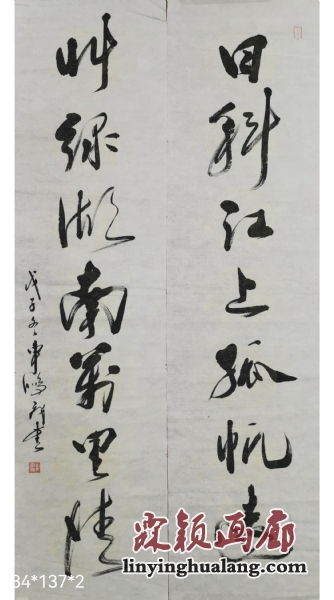 日斜江上孤帆
艸綠湖南萬里情
戊子冬車鵬飛書
霖颖画廊
linyinghualang.com
34*137*2